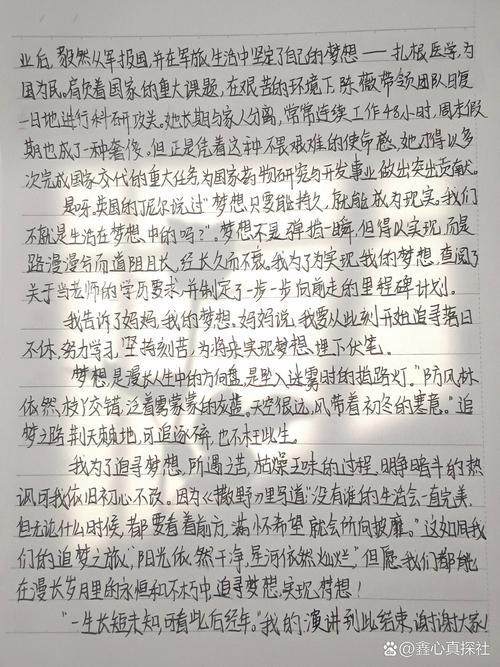 业后,毅然从军报国,并在军旅生活中坚定了自己的梦想——扎根医学,为
国为民。肩负着国家的重大课题,在艰苦的环境下,陈薇带领团队日复
一日地进行科研攻关。她长期与家人分离,常常连续工作48小时,周末假
期也成了一种奢侈。但正是凭着这种不畏艰难的使命感,她才得以多
次完成国家交代的重大任务为国家药物研究与开发事业做出突出贡献。
是呀。英国的丁尼尔说过"梦想只要能持久,就能成为现实。我们
不就是生活在梦想中的吗?"。梦想不是弹指一瞬,但得以实现,而是
路漫漫兮而道阻且长,经长久而不衰。我为了为实现我的梦想,查阅了
关于当老师的学历要求,并制定了一步一步向前走的里程碑计划。
我告诉了妈妈,我的梦想。妈妈说,我要从此刻开始追寻落日
不休,努力学习,坚持刻苦,为将来实现梦想埋下伏笔。
梦想是漫长人生中的方向盘,是坠入迷雾时的指路灯。"防风林
依然,枝丫交错,泛着雾蒙蒙的灰蓝。天空很远,风带着初冬的寒意。"追
梦之路,荆天棘地,可追逐碎,也不枉此生。
我为了追寻梦想,所遇之苦,枯燥乏味的过程,明争暗斗的热
讽,可我依旧初心不改。因为《撒野》里写道"没有谁的生活会一直完美,
但无论什么时候,都要看着前方,满怀希望就会所向披靡。"这如同我
们的追梦之旅,"阳光依然干净,星河依然灿烂。"但愿我们都能
在漫长岁月里的永恒和不朽中,追寻梦想,实现梦想!
"一生长短未知,可看此后经年。"我的演讲到此结束,谢谢大家!
@鑫心真探社